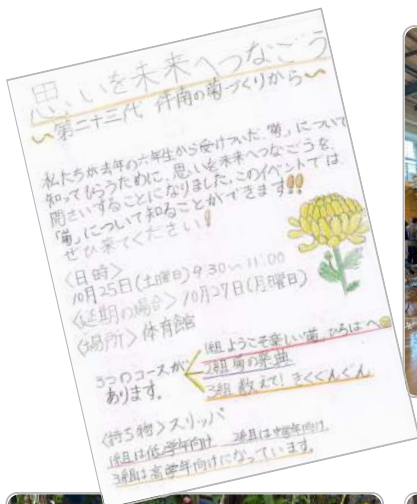 思いを未来へつなごう
〜第二十三代 件南の菊づくりから〜
私たちが去年の六年生から受けついだ「菊」について
知ってもらうために、思いを未来へつなごうを
開さいすることになりました。このイベントでは
「菊」について知ることができます!!
ぜひ来てください!
〈日時〉
10月25日(土曜日)9:30〜11:00
〈延期の場合〉10月27日(月曜日)
〈場所〉体育館
3つのコースが
あります。
1組 ようこそ楽しい菊ひろばへ
2組 菊の祭典
3組 教えて!きくぐんぐん
〈持ち物〉スリッパ
1組は低学年向け 2組は中学年向け
3組は高学年向けになっています。